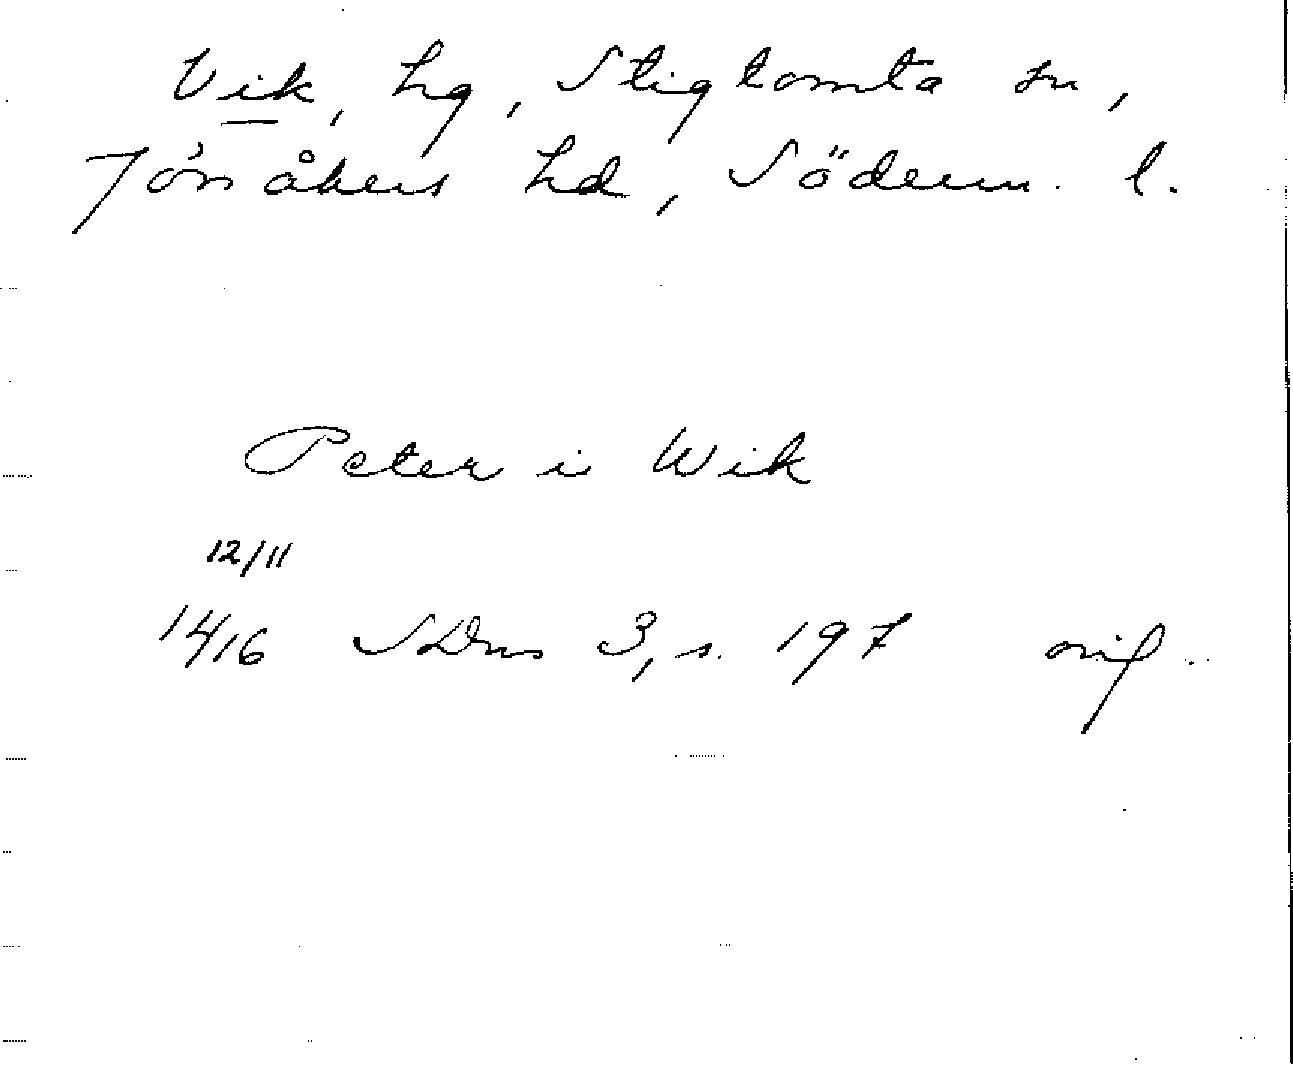 Vik, hg, Stigtomta sn,
Jönåkers hd, Söderm. l.
Peter i Wik
12/11
1416 SDns 3, s. 197 orig.